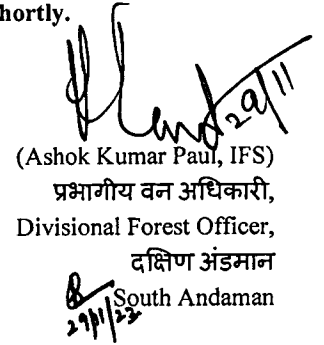 hortly.
29/11
(Ashok Kumar Paul, IFS)
प्रभागीय वन अधिकारी,
Divisional Forest Officer,
दक्षिण अंडमान
South Andaman
29/11/23